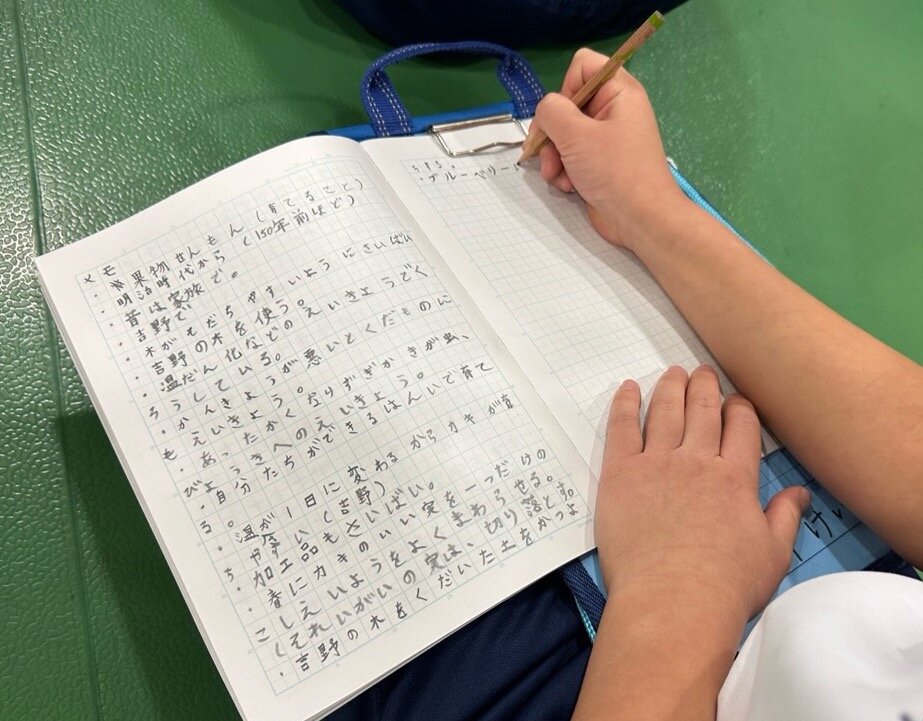 メモ
・※果物せんもん(育てること)
・明治時代から(150年前ほど)
・昔は家族で。
・吉野で
・木がそだちやすいようにさいばい
・吉野の木を使う。
・温だん化などのえいきょうでく
ろうしている。
・かんきょうが悪いとくだものに
も、えいきょう。
・あったかくなりすぎかきが虫、
びょうきへのえいきょう。
・自分たちができるはんいで育て
る。
・温が1日に変わるからカキが育
ちやすい(吉野)
・加工品もさいばい。
・春にカキのいい実を一つだけの
こしえいようをよくまわらせる。
(それいがいの実は、切り落とす。
・吉野の木をくだいた土をかつよ
うする。
・ブルーベリー
けい